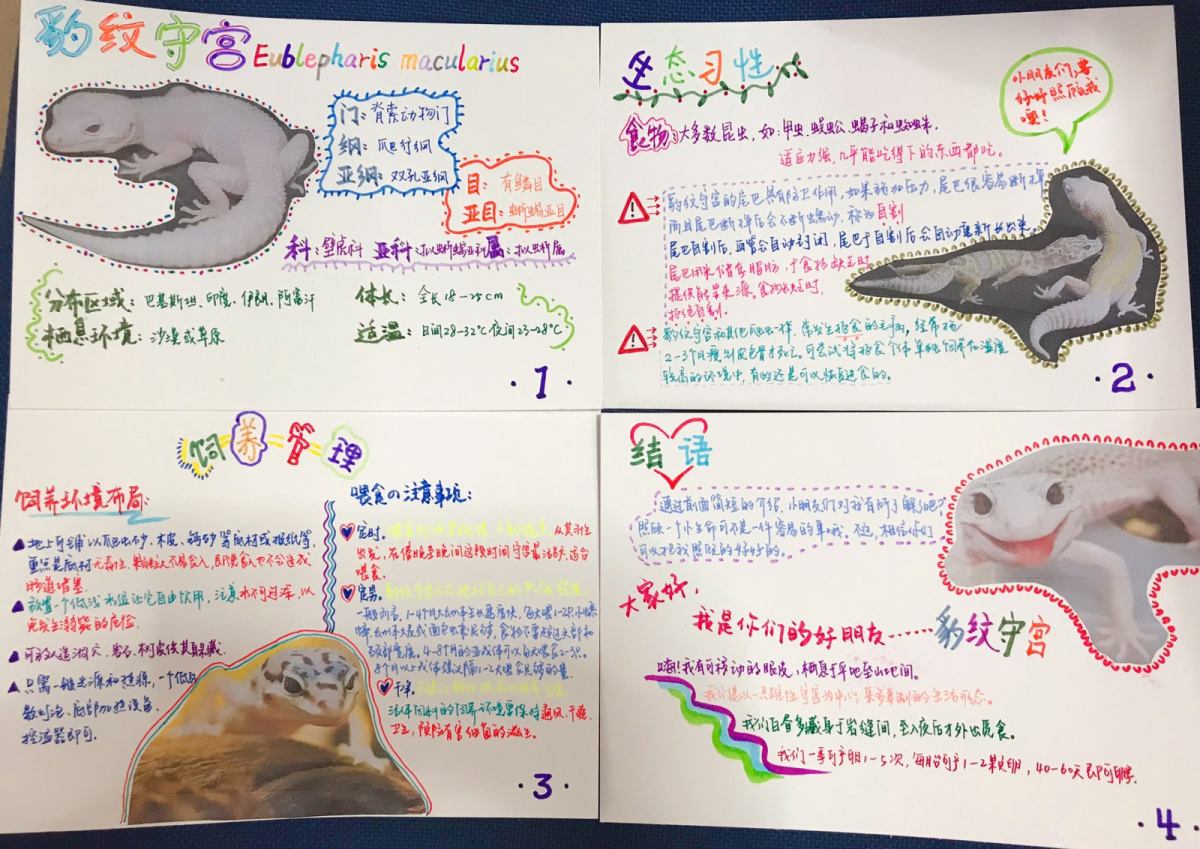 豹纹守宫Eublepharis macularius
门：脊索动物门
纲：爬行纲
亚纲：双孔亚纲
目：有鳞目
亚目：蜥蜴亚目
科：壁虎科 亚科：拟蜥蜴亚科 属：拟蜥属
分布区域：巴基斯坦、印度、伊朗、阿富汗
栖息环境：沙漠或草原
体长：全长18-25cm
适温：日间28-32℃夜间23-28℃
·1·
生态习性
小朋友们，要
好好照顾我
噢！
食物：大多数昆虫，如：甲虫、蜈蚣、蝎子和蜘蛛。
适应力强，几乎能吃得下的东西都吃。
豹纹守宫的尾巴具有防卫作用，如果施加压力，尾巴很容易断掉
而且尾巴断掉后会不断蠕动，称为自割
尾巴自割后，血管会自动封闭，尾巴于自割后会自动重新长出来
尾巴用来储存脂肪，于食物缺乏时
提供能量来源。食物缺乏时，
拒绝自割。
豹纹守宫和其他爬虫一样，常发生拒食的毛病，经常拖
2-3个月瘦到皮包骨才死亡。可尝试将拒食个体单独饲养在温度
较高的环境中，有的还是可以恢复进食的。
·2·
饲养管理
饲养环境布局：
地上可铺以爬虫砂、木皮、砖砂等底材或报纸等，
重点是底材无毒性、颗粒大不易食入，即使食入也不会造成
肠道堵塞。
放置一个低浅水盆让它自由饮用，注意水不可过深，以
免发生溺毙的危险。
可放人造洞穴、岩石、树皮供其躲藏。
只需一般光源和热源，一个低瓦
数灯泡、底部加热设备、
控温器即可。
喂食の注意事项：
定时。
从其野生
出发，在傍晚至晚间这段时间守宫最活跃，适合
喂食。
定量。
一般而言，1-4个月大的
8个月以上成体建议隔1-2天喂足够的量。
干净。
饲养环境要保持通风、干燥、
卫生，预防有害细菌的滋生。
·3·
结语
通过前面简短的介绍，小朋友们对我有所了解了吧？
照顾一个小生命可不是一件容易的事哦。不过，相信你们
可以把我照顾的好好的。
大家好，
我是你们的好朋友……豹纹守宫
嗨！我有可移动的眼皮，栖息于平地至山地间。
我们是以一只雄性守宫为中心，集多数雌的生活形态。
我们白昼多藏身于岩缝间，至入夜后才外出觅食。
我们一季可产卵1-5次，每胎可产1-2颗卵，40-60天即可孵
·4